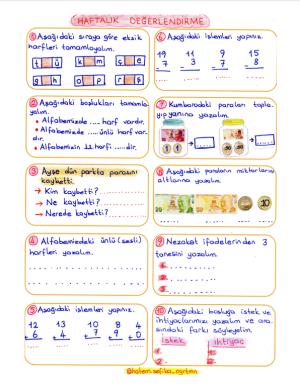 HAFTALIK DEĞERLENDİRME
① Aşağıdaki sıraya göre eksik
harfleri tamamlayalım.
② Aşağıdaki boşlukları tamamla-
yalım.
• Alfabemizde .... harf vardır.
• Alfabemizde ..... ünlü harf var-
dır.
• Alfabemizin 12. harfi ..... dir.
③ Ayşe dün parkta parasını
kaybetti.
→ Kim kaybetti?
→ Ne kaybetti?
→ Nerede kaybetti?
④ Alfabemizdeki ünlü (sesli)
harfleri yazalım.
⑤ Aşağıdaki işlemleri yapınız.
12 13 10 8 4
+6 -4 -7 +9 -0
⑥ Aşağıdaki işlemleri yapınız.
19 11 9 15
-7 -3 -7 -8
⑦ Kumbaradaki paraları topla-
yıp yanına yazalım.
⑧ Aşağıdaki paraların miktarlarını
altlarına yazalım.
⑨ Nezaket ifadelerinden 3
tanesini yazalım.
1-
2-
3-
⑩ Aşağıdaki boşluğa istek ve
ihtiyaçlarımızı yazalım ve ara-
sındaki farkı söyleyelim.
istek ihtiyaç